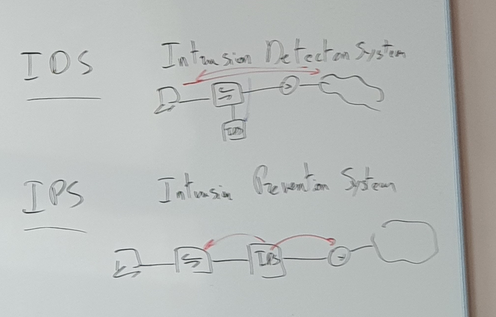 IDS Intrusion Detection System
IDS
IPS Intrusion Prevention System
IPS